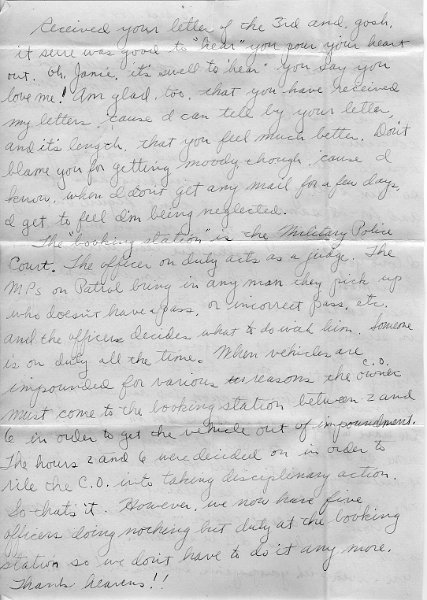 Received your letter of the 3rd and, gosh,
it sure was good to "hear" you pour your heart
out. Oh, Janie, it's swell to "hear" you say you
love me! Am glad, too, that you have received
my letters, 'cause I can tell by your letter,
and its length, that you feel much better. Don't
blame you for getting moody though, 'cause I
know, when I don't get any mail for a few days,
I get to feel I'm being neglected.
The "booking station" is the Military Police
Court. The officer on duty acts as a judge. The
MPs on Patrol bring in any man they pick up
who doesn't have a pass, or incorrect pass, etc.
and the officer decides what to do with him. Someone
is on duty all the time. When vehicles are
impounded for various reasons the C.O. owner
must come to the booking station between 2 and
6 in order to get the vehicle out of impoundment.
The hours 2 and 6 were decided on in order to
rile the C.O. into taking disciplinary action.
So that's it. However, we now have five
officers doing nothing but duty at the booking
station so we don't have to do it any more.
Thank heavens!!